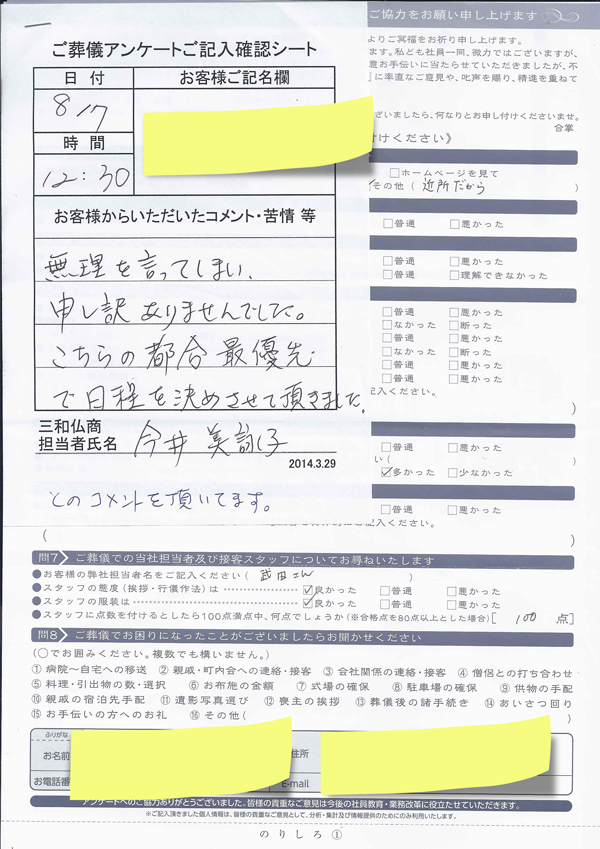 ご協力をお願い申し上げます
よりご冥福をお祈り申し上げます。
ます。私ども社員一同、微力ではございますが、
意お手伝いに当たらせていただきましたが、不
に率直なご意見や、叱声を賜り、精進を重ねて
ざいましたら、何なりとお申し付けくださいませ。
合掌
付けください》
ご葬儀アンケートご記入確認シート
日付
お客様ご記名欄
8/7
時間
12:30
お客様からいただいたコメント・苦情 等
無理を言ってしまい、
申し訳ありませんでした。
こちらの都合最優先
で日程を決めさせて頂きました。
三和仏商
担当者氏名 今井
2014.3.29
とのコメントを頂いてます。
□ホームページを見て
その他(近所だから)
□普通 □悪かった
□普通 □悪かった
□普通 □理解できなかった
□普通 □悪かった
□なかった □断った
□普通 □悪かった
□なかった □断った
□普通 □悪かった
□普通 □悪かった
記入ください。
)
□普通 □悪かった
い(
☑多かった □少なかった
□普通 □悪かった
記入ください。
( )
問7 ご葬儀での当社担当者及び接客スタッフについてお尋ねいたします
●お客様の弊社担当者名をご記入ください(武田さん)
●スタッフの態度(挨拶・行儀作法)は ☑良かった □普通 □悪かった
●スタッフの服装は ☑良かった □普通 □悪かった
●スタッフに点数を付けるとしたら100点満点中、何点でしょうか(※合格点を80点以上とした場合)[ 100 点]
問8 ご葬儀でお困りになったことがございましたらお聞かせください
(○でお囲みください。複数でも構いません。)
①病院〜自宅への移送 ②親戚・町内会への連絡・接客 ③会社関係の連絡・接客 ④僧侶との打ち合わせ
⑤料理・引出物の数・選択 ⑥お布施の金額 ⑦式場の確保 ⑧駐車場の確保 ⑨供物の手配
⑩親戚の宿泊先手配 ⑪遺影写真選び ⑫喪主の挨拶 ⑬葬儀後の諸手続き ⑭あいさつ回り
⑮お手伝いの方へのお礼 ⑯その他( )
ふりがな
お名前
住所
お電話番
E-mail
アンケートへのご協力ありがとうございました。皆様の貴重なご意見は今後の社員教育・業務改革に役立たせていただきます。
※ご記入頂きました個人情報は、皆様の貴重なご意見として、分析・集計及び情報提供のためにのみ利用いたします。
のりしろ①